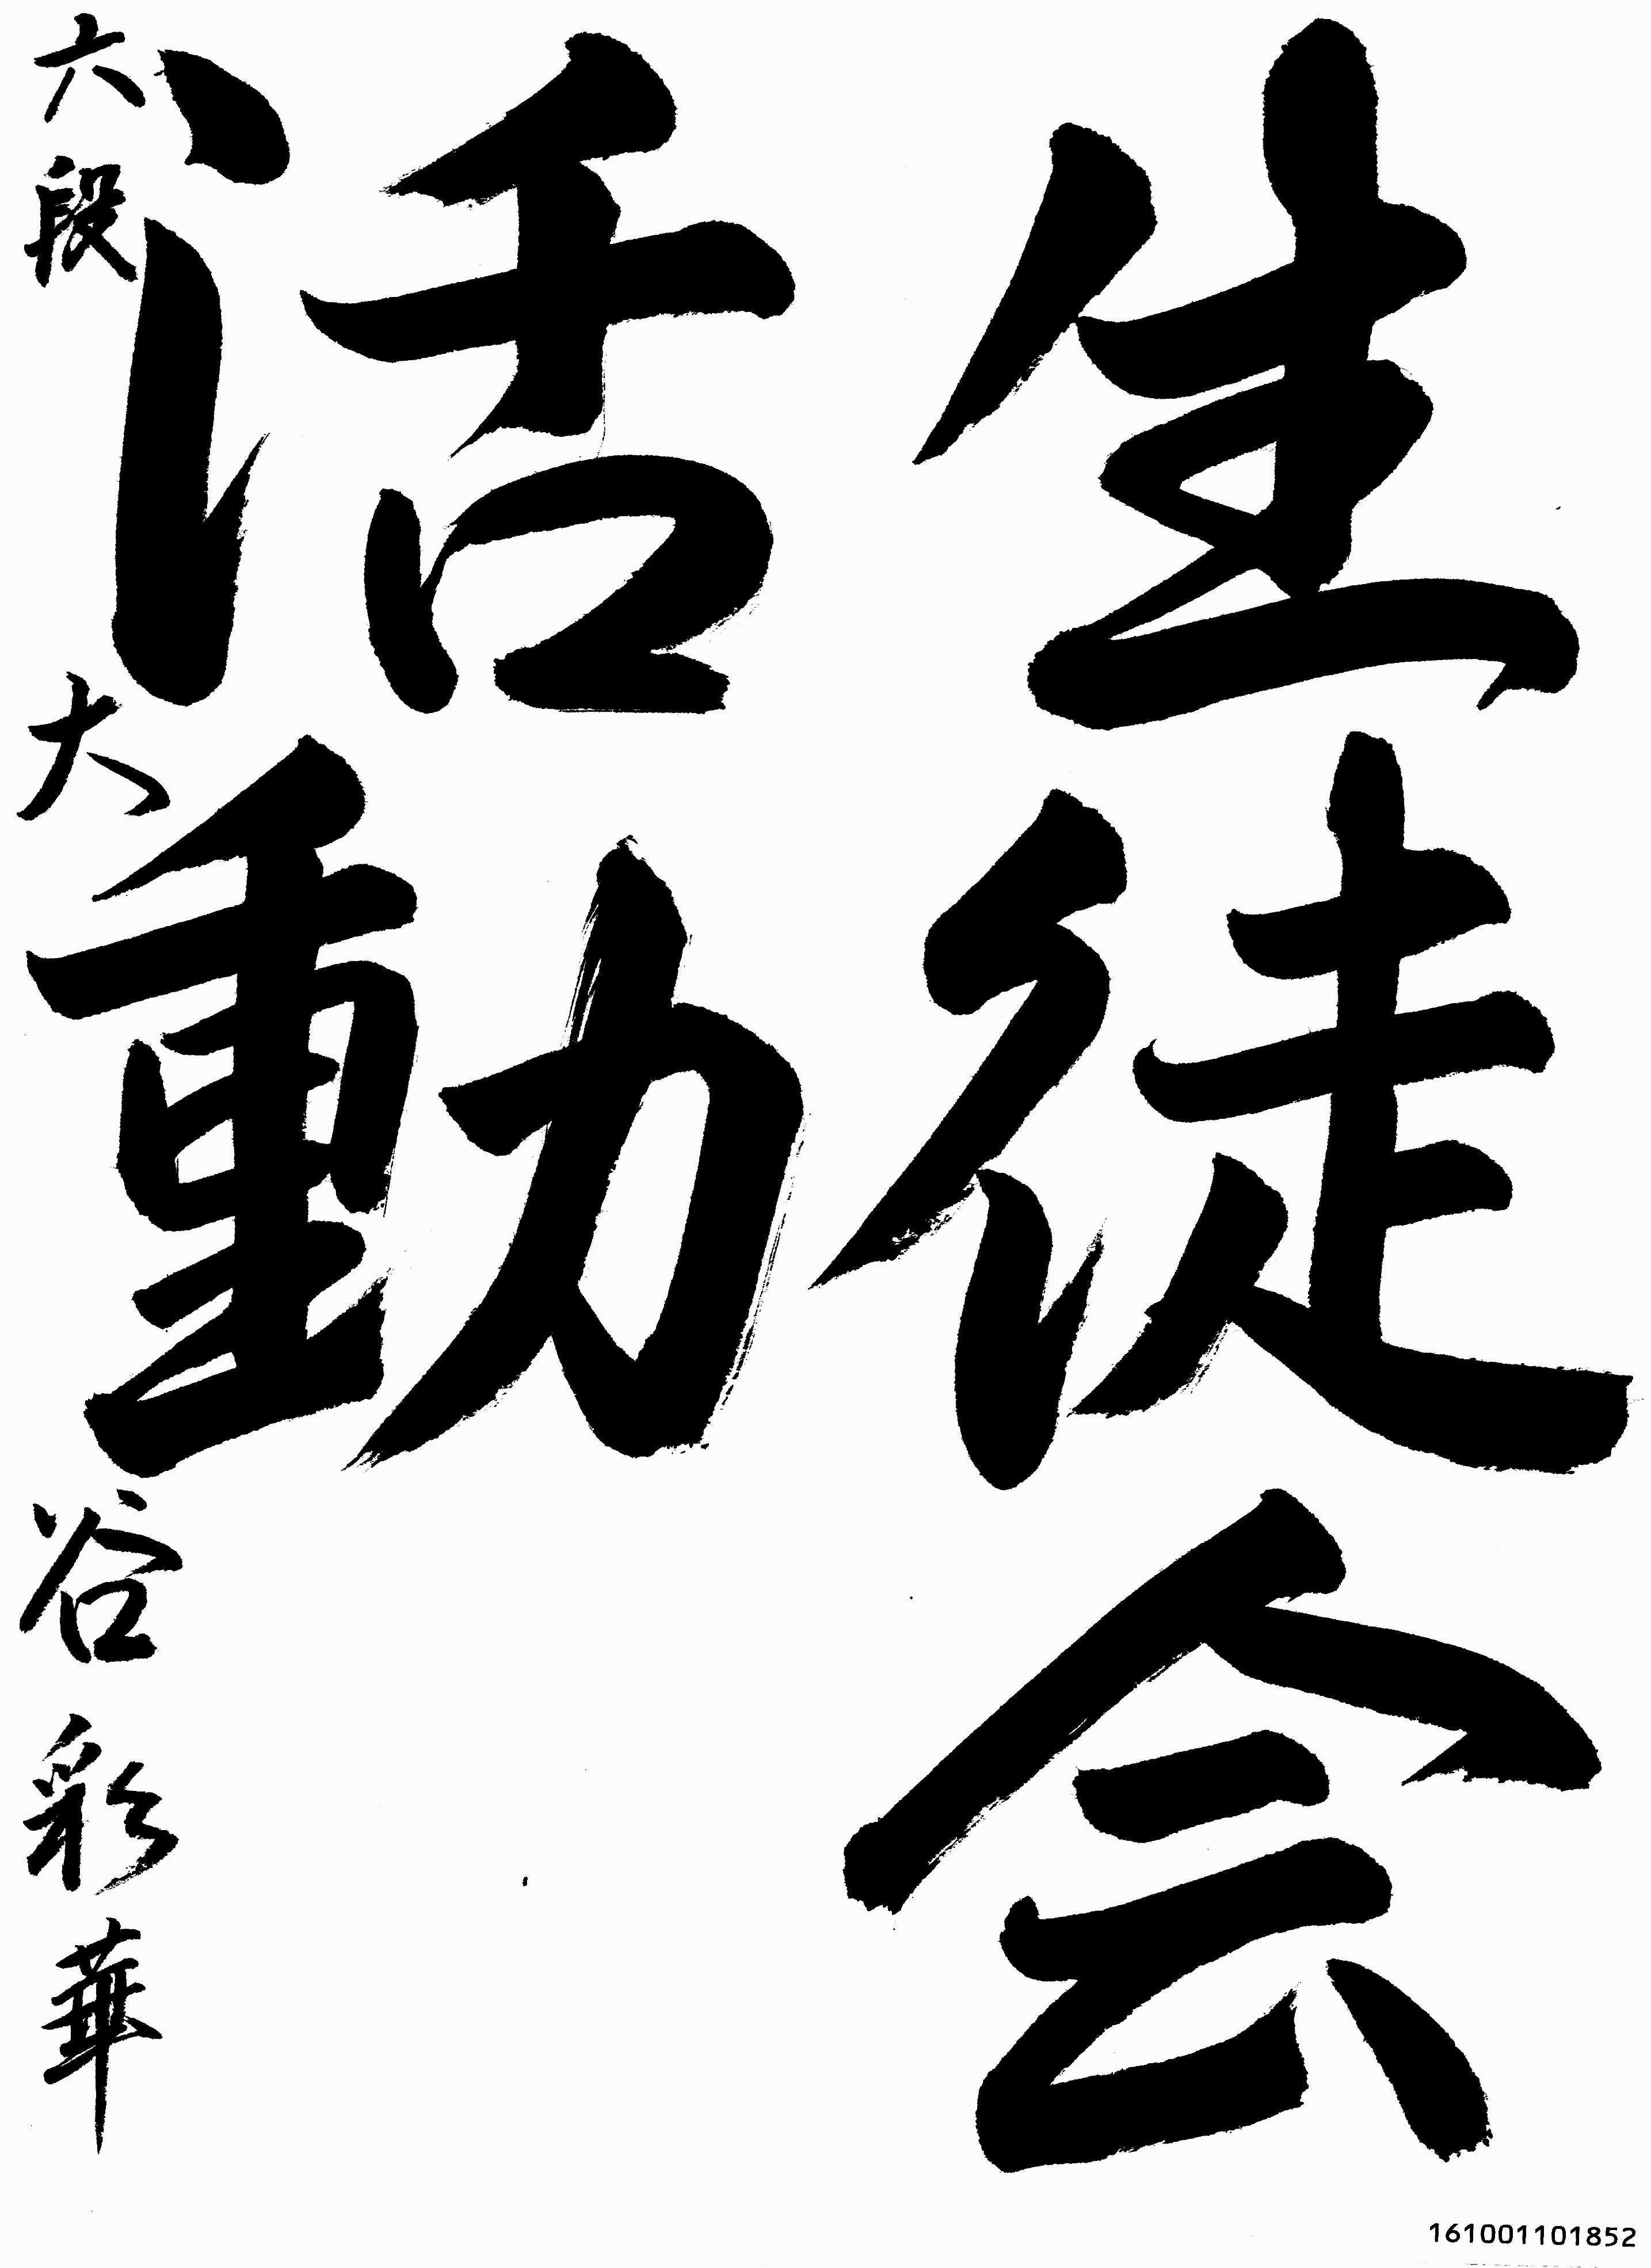 生徒会
活動
六段 大谷彩華
161001101852